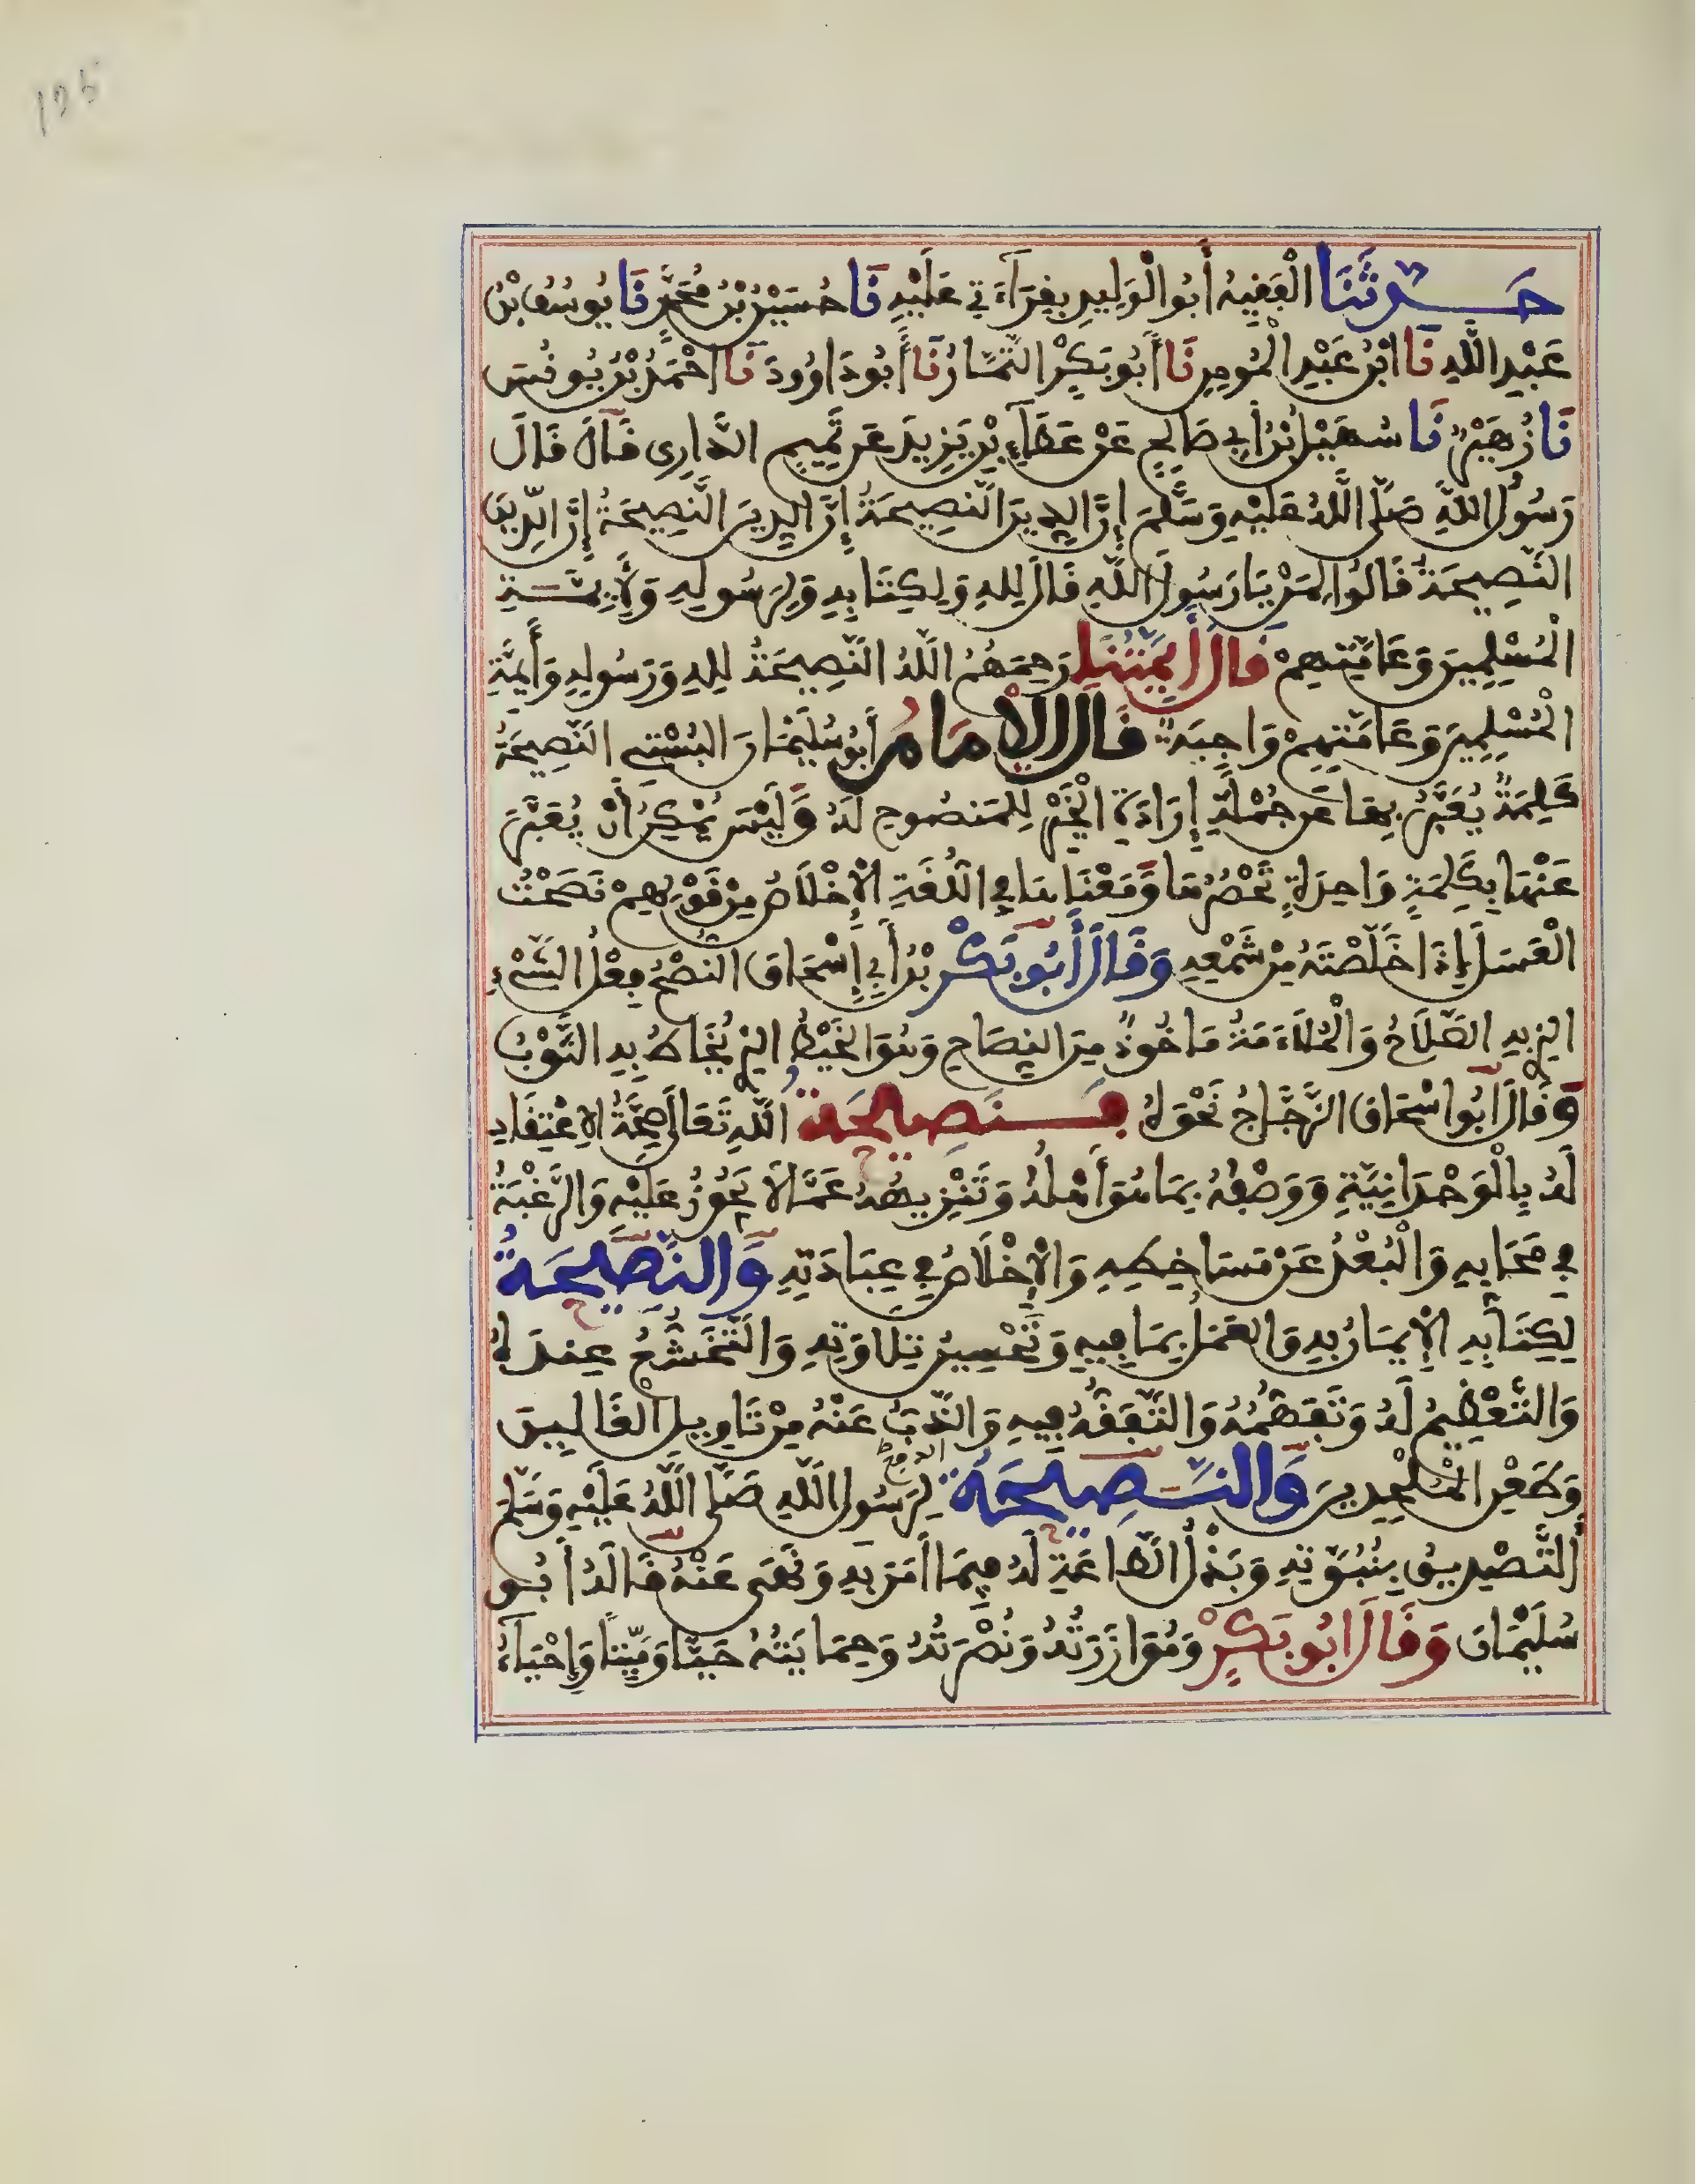 195
حَدَّثَنَا الْفَقِيهُ أَبُو الْوَلِيدِ بِقِرَاءَتِي عَلَيْهِ نَا حُسَيْنُ بْنُ مُحَمَّدٍ نَا يُوسُفُ بْنُ
عَبْدِ اللَّهِ نَا ابْنُ عَبْدِ الْمُومِنِ نَا أَبُو بَكْرٍ التَّمَّارُ نَا أَبُو دَاوُودَ نَا أَحْمَدُ بْنُ يُونُسَ
نَا زُهَيْرٌ نَا سُهَيْلُ بْنُ أَبِي صَالِحٍ عَنْ عَطَاءِ بْنِ يَزِيدَ عَنْ تَمِيمٍ الدَّارِي قَالَ قَالَ
رَسُولُ اللَّهِ صَلَّى اللَّهُ عَلَيْهِ وَسَلَّمَ إِنَّ الدِّينَ النَّصِيحَةُ إِنَّ الدِّينَ النَّصِيحَةُ إِنَّ الدِّينَ
النَّصِيحَةُ قَالُوا لِمَنْ يَا رَسُولَ اللَّهِ قَالَ لِلهِ وَلِكِتَابِهِ وَلِرَسُولِهِ وَلِأَئِمَّةِ
الْمُسْلِمِينَ وَعَامَّتِهِمْ قَالَ أَئِمَّتُنَا رَحِمَهُمُ اللَّهُ النَّصِيحَةُ لِلهِ وَرَسُولِهِ وَأَيِمَّةِ
الْمُسْلِمِينَ وَعَامَّتِهِمْ وَاجِبَةٌ قَالَ الْإِمَامُ أَبُو سُلَيْمَانَ الْبُسْتِي النَّصِيحَةُ
كَلِمَةٌ يُعَبَّرُ بِهَا عَنْ جُمْلَةِ إِرَادَةِ الْخَيْرِ لِلْمَنْصُوحِ لَهُ وَلَيْسَ يُمْكِنُ أَنْ يُعَبَّرَ
عَنْهَا بِكَلِمَةٍ وَاحِدَةٍ تَحْصُرُهَا وَمَعْنَاهَا فِي اللُّغَةِ الْإِخْلَاصُ مِنْ قَوْلِهِمْ نَصَحْتُ
الْعَسَلَ إِذَا خَلَّصْتَهُ مِنْ شَمْعِهِ وَقَالَ أَبُو بَكْرِ بْنُ أَبِي إِسْحَاقَ النُّصْحُ فِعْلُ الشَّيْءِ
الذِي بِهِ الصَّلَاحُ وَالْمُلَاءَمَةُ مَاخُوذٌ مِنَ النِّصَاحِ وَهُوَ الْخَيْطُ الذِي يُخَاطُ بِهِ الثَّوْبُ
وَقَالَ أَبُو إِسْحَاقَ الزَّجَّاجُ نَحْوَهُ فَنَصِيحَةُ اللَّهِ تَعَالَى صِحَّةُ الِاعْتِقَادِ
لَهُ بِالْوَحْدَانِيَّةِ وَوَصْفُهُ بِمَا هُوَ أَهْلُهُ وَتَنْزِيهُهُ عَمَّا لَا يَجُوزُ عَلَيْهِ وَالرَّغْبَةُ
فِي مَحَابِّهِ وَالْبُعْدُ عَنْ مَسَاخِطِهِ وَالْإِخْلَاصُ فِي عِبَادَتِهِ وَالنَّصِيحَةُ
لِكِتَابِهِ الْإِيمَانُ بِهِ وَالْعَمَلُ بِمَا فِيهِ وَتَحْسِينُ تِلَاوَتِهِ وَالتَّخَشُّعُ عِنْدَهُ
وَالتَّعْظِيمُ لَهُ وَتَفَهُّمُهُ وَالتَّفَقُّهُ فِيهِ وَالذَّبُّ عَنْهُ مِنْ تَاوِيلِ الْغَالِينَ
وَطَعْنِ الْمُلْحِدِينَ وَالنَّصِيحَةُ لِرَسُولِ اللَّهِ صَلَّى اللَّهُ عَلَيْهِ وَسَلَّمَ
التَّصْدِيقُ بِنُبُوَّتِهِ وَبَذْلُ الطَّاعَةِ لَهُ فِيمَا أَمَرَ بِهِ وَنَهَى عَنْهُ قَالَهُ أَبُو
سُلَيْمَانَ وَقَالَ أَبُو بَكْرٍ وَمُوَازَرَتُهُ وَنُصْرَتُهُ وَحِمَايَتُهُ حَيًّا وَمَيِّتًا وَإِحْيَاءُ